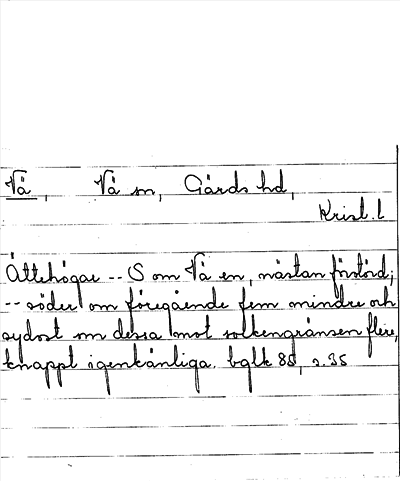 Vä, Vä sn, Gärds hd,
Krist. l
Ättehögar -- S om Vä en, nästan förstörd;
-- söder om föregående fem mindre och
sydost om dessa mot sockengränsen flere,
knappt igenkänliga. bglk 85, s. 35